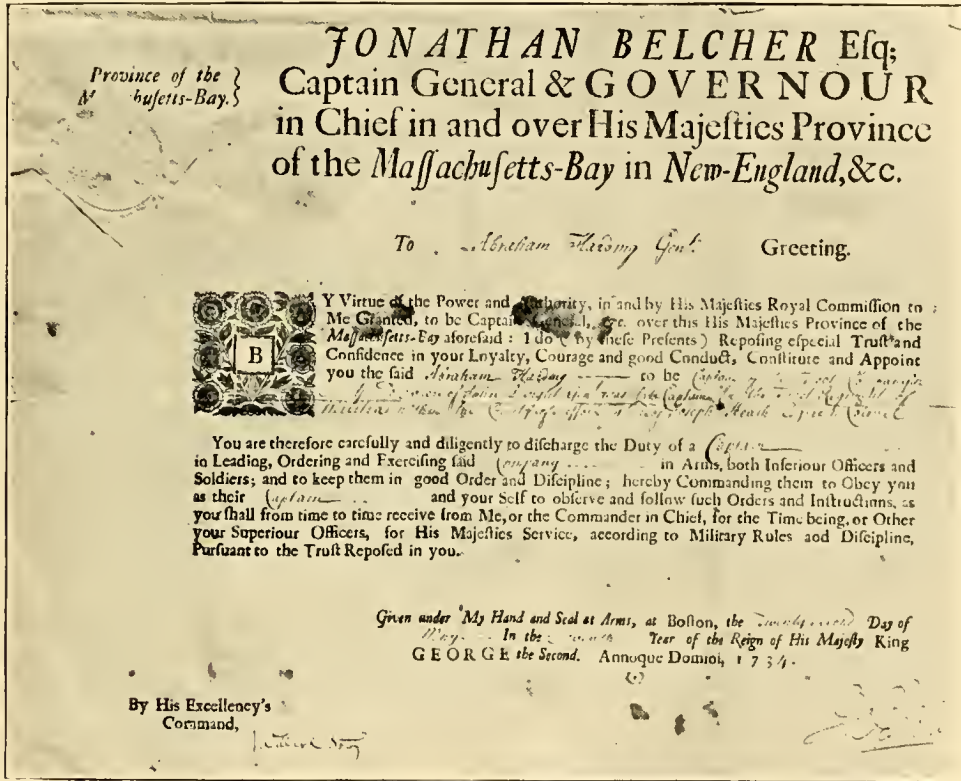 JONATHAN BELCHER Eſq;
Province of the }
M huſetts-Bay. }
Captain General & GOVERNOUR
in Chief in and over His Majeſties Province
of the Maſſachuſetts-Bay in New-England, &c.
To Abraham Harding Gent. Greeting.
BY Virtue of the Power and Authority, in and by His Majeſties Royal Commiſſion to
Me Granted, to be Captain General, &c. over this His Majeſties Province of the
Maſſachuſetts-Bay aforeſaid: I do (by theſe Preſents) Repoſing eſpecial Truſt and
Confidence in your Loyalty, Courage and good Conduct, Conſtitute and Appoint
you the ſaid Abraham Harding to be Captain of the Foot Company
late Captain in the Regiment of
Militia Joseph Heath Colonel
You are therefore carefully and diligently to diſcharge the Duty of a Captain
in Leading, Ordering and Exerciſing ſaid Company in Arms, both Inferiour Officers and
Soldiers; and to keep them in good Order and Diſcipline; hereby Commanding them to Obey you
as their Captain and your Self to obſerve and follow ſuch Orders and Inſtructions, as
you ſhall from time to time receive from Me, or the Commander in Chief, for the Time being, or Other
your Superiour Officers, for His Majeſties Service, according to Military Rules and Diſcipline,
Purſuant to the Truſt Repoſed in you.
Given under My Hand and Seal at Arms, at Boſton, the Day of
May In the Year of the Reign of His Majeſty King
GEORGE the Second. Annoque Domini, 1734.
By His Excellency's
Command,